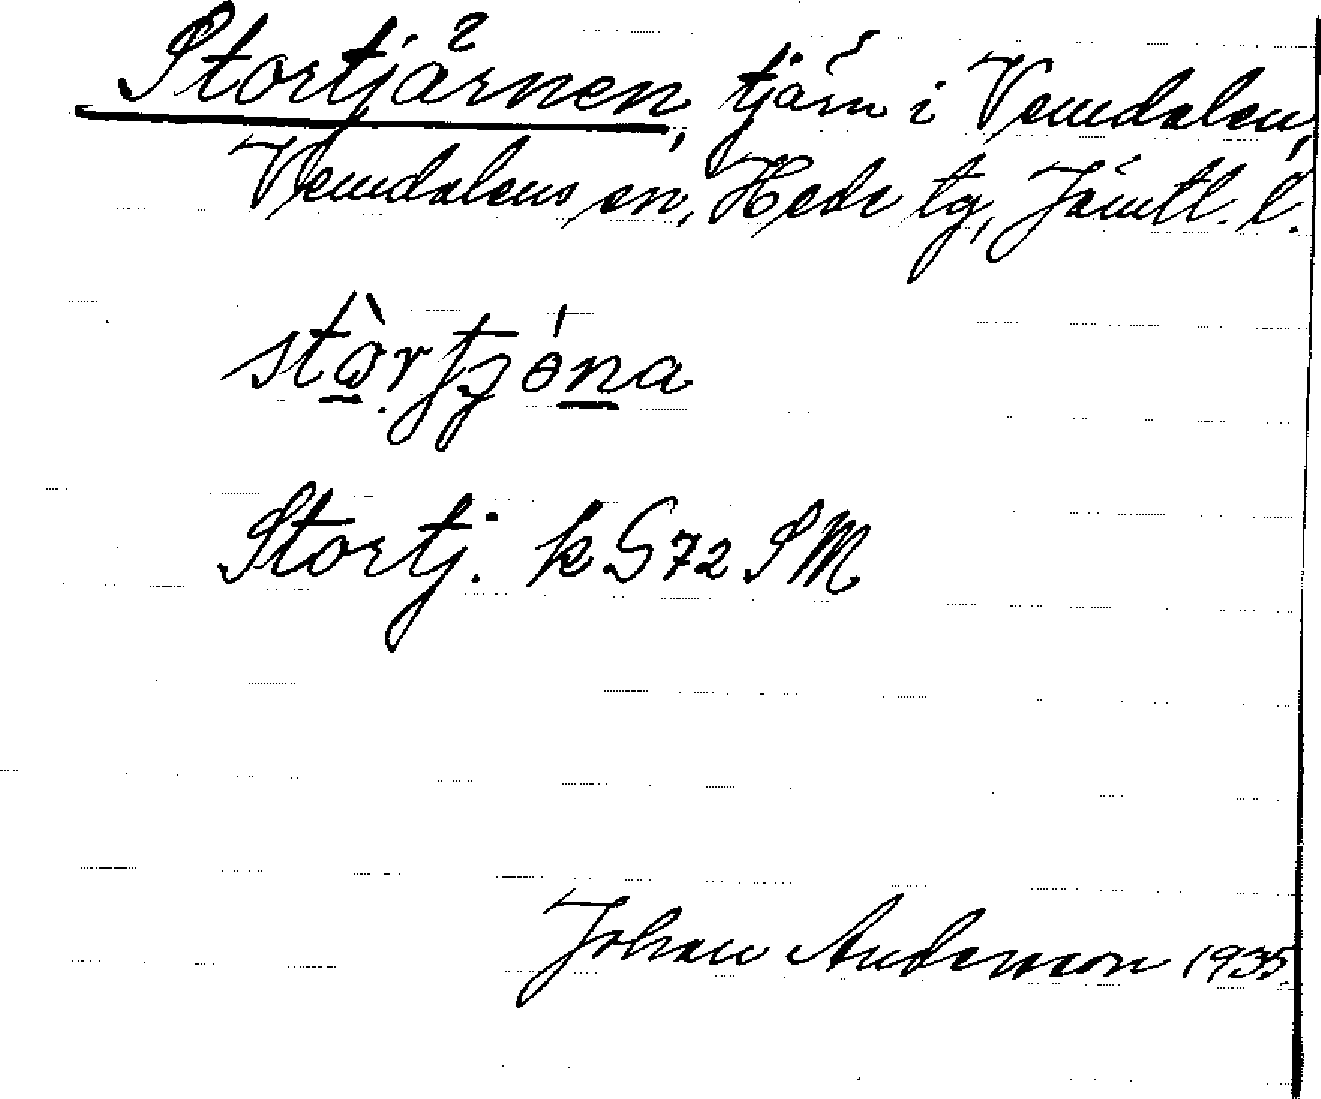 Stortjärnen, tjärn i Vemdalen,
Vemdalens sn, Hede tg, Jämtl. l.
Stortj. k G72 SM
Johan Anderson 1935.